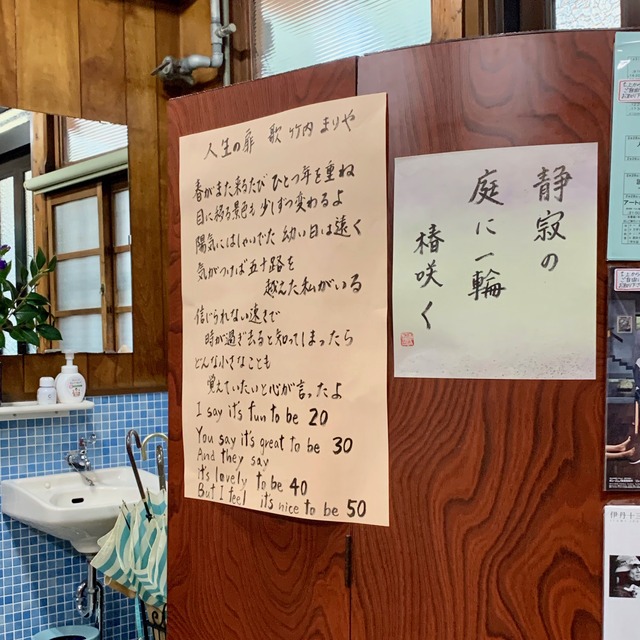 人生の扉 歌 竹内 まりや
春がまた来るたび ひとつ年を重ね
目に映る景色も 少しずつ変わるよ
陽気にはしゃいでた 幼い日は遠く
気がつけば五十路を
越えた私がいる
信じられない速さで
時が過ぎ去ると知ってしまったら
どんな小さなことも
覚えていたいと心が言ったよ
I say it's fun to be 20
You say it's great to be 30
And they say
it's lovely to be 40
But I feel it's nice to be 50
静寂の
庭に一輪
椿咲く
伊丹十三